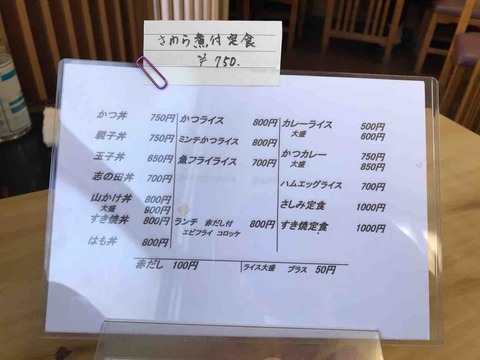 さわら煮付定食
¥750.
かつ丼 750円
親子丼 750円
玉子丼 650円
志の田丼 700円
山かけ丼 800円
大盛 900円
すき焼丼 800円
はも丼 800円
かつライス 800円
ミンチかつライス 800円
魚フライライス 700円
ランチ 赤だし付 800円
エビフライ コロッケ
カレーライス 500円
大盛 600円
かつカレー 750円
大盛 850円
ハムエッグライス 700円
さしみ定食 1000円
すき焼定食 1000円
赤だし 100円
ライス大盛 プラス 50円